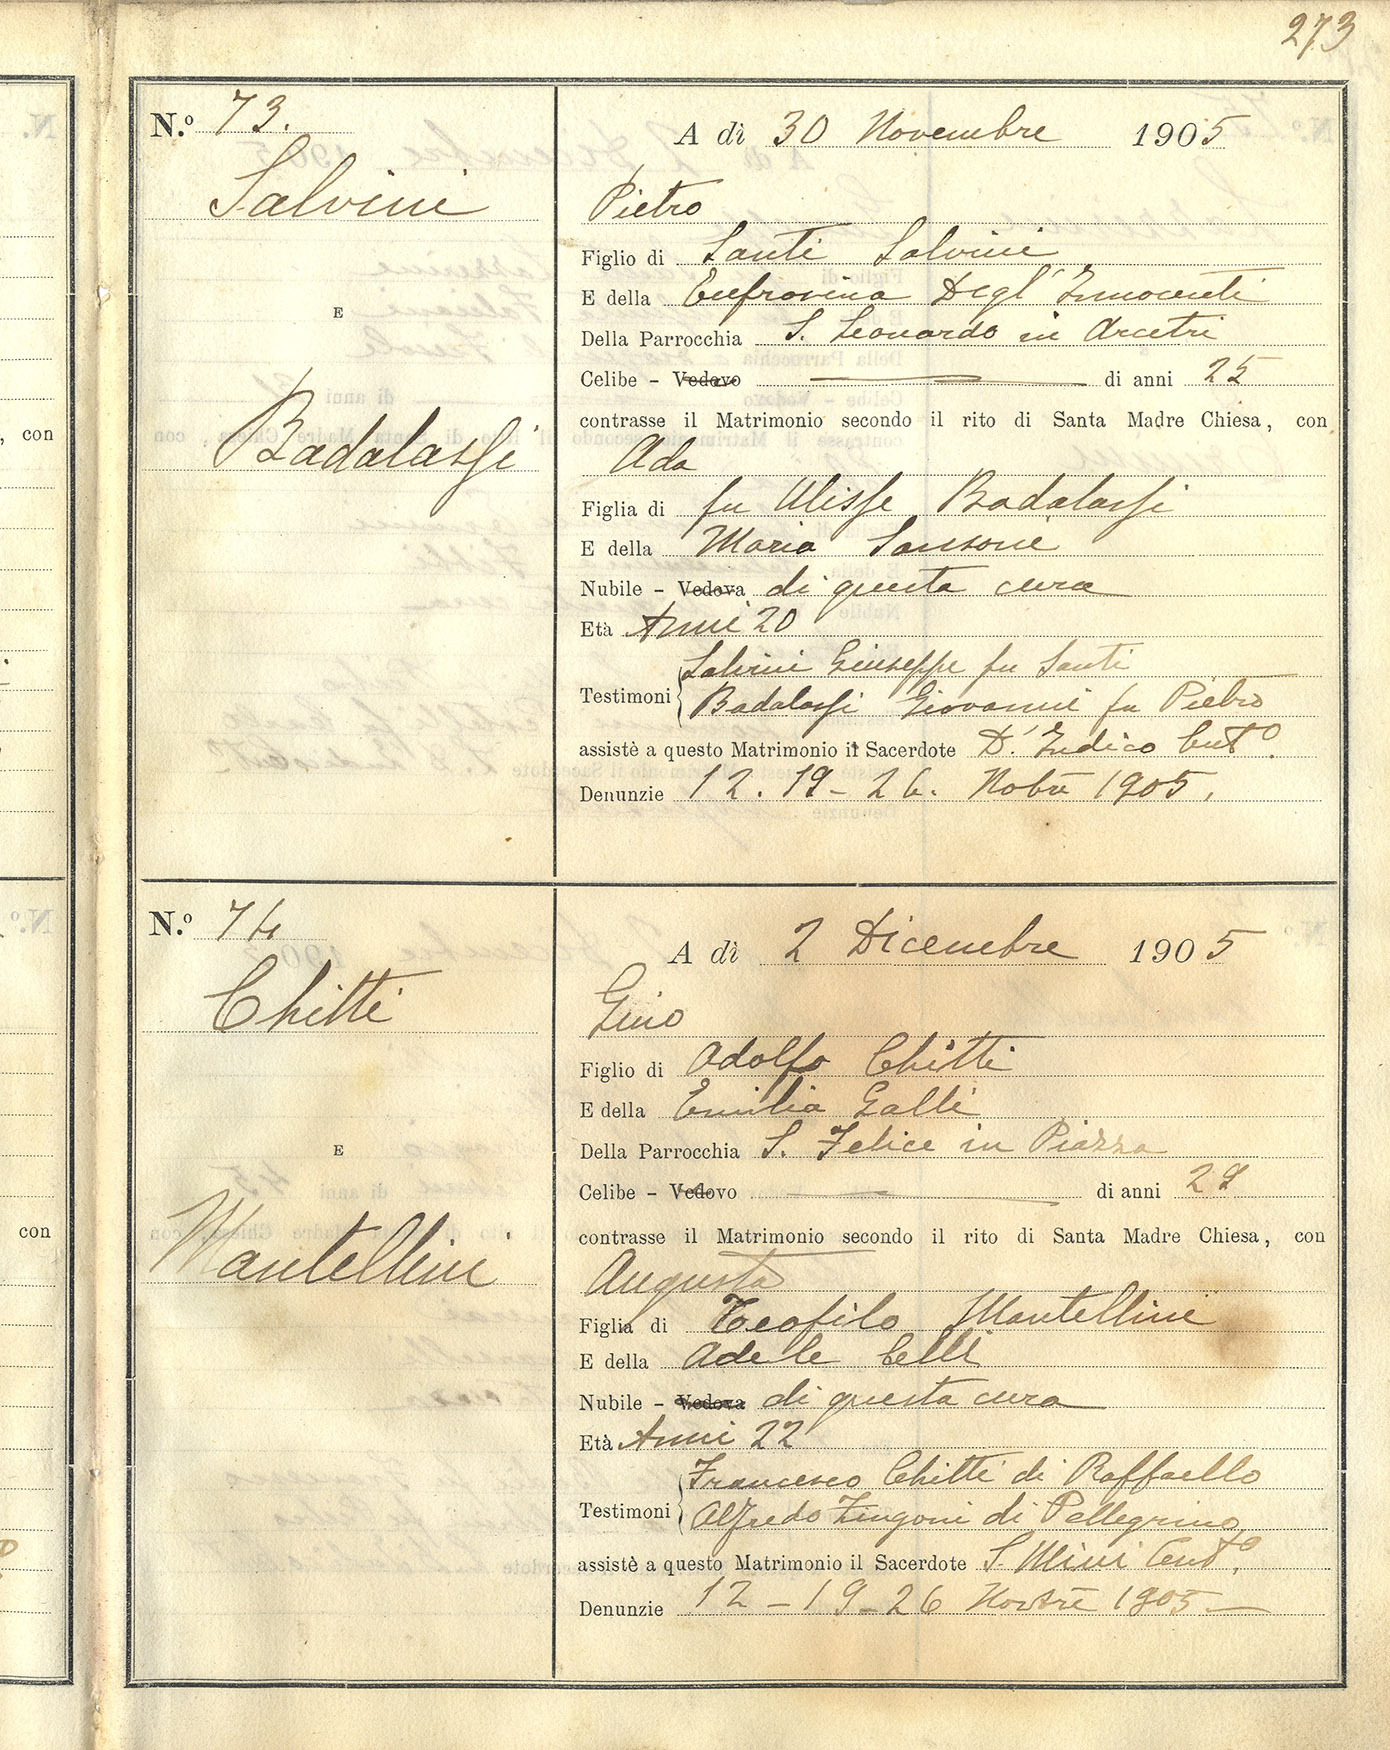 273
N.º 73.
Salvini
E
Badalassi
A dì 30 Novembre 1905
Pietro
Figlio di Santi Salvini
E della Eufrosina Degl'Innocenti
Della Parrocchia S. Leonardo in Arcetri
Celibe - Vedovo di anni 25
contrasse il Matrimonio secondo il rito di Santa Madre Chiesa, con
Ada
Figlia di fu Ulisse Badalassi
E della Maria Sansone
Nubile - Vedova di questa cura
Età Anni 20
Salvini Giuseppe fu Santi
Testimoni
Badalassi Giovanni fu Pietro
assistè a questo Matrimonio il Sacerdote D'Indico Curº.
Denunzie 12. 19 - 26. Nobre 1905.
N.º 74
Chitti
E
Mantellini
A dì 2 Dicembre 1905
Gino
Figlio di Adolfo Chitti
E della Emilia Galli
Della Parrocchia S. Felice in Piazza
Celibe - Vedovo di anni 29
contrasse il Matrimonio secondo il rito di Santa Madre Chiesa, con
Augusta
Figlia di Teofilo Mantellini
E della Adele Celli
Nubile - Vedova di questa cura
Età Anni 22
Francesco Chitti di Raffaello
Testimoni
Alfredo Zingoni di Pellegrino
assistè a questo Matrimonio il Sacerdote S. Mini Curº.
Denunzie 12 - 19 - 26 Novbre 1905 -
con
con